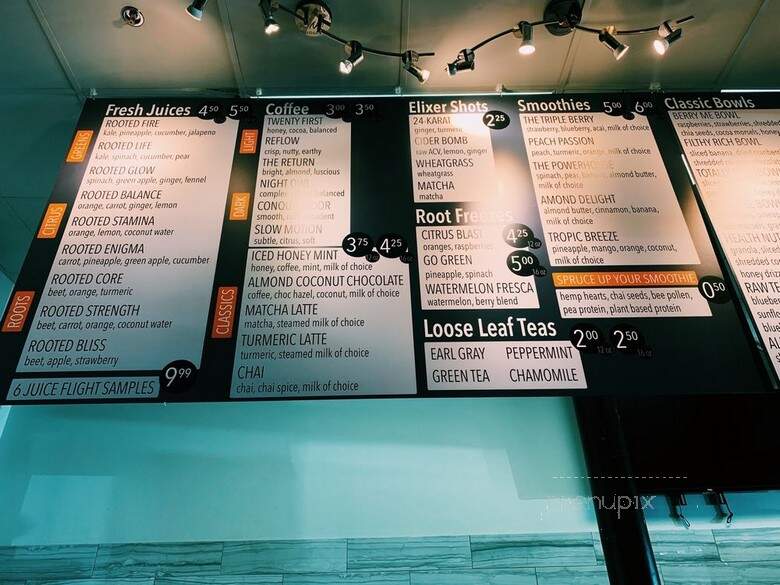 Fresh Juices 4 50 5 50
GREENS
ROOTED FIRE
kale, pineapple, cucumber, jalapeno
ROOTED LIFE
kale, spinach, cucumber, pear
ROOTED GLOW
spinach, green apple, ginger, fennel
CITRUS
ROOTED BALANCE
orange, carrot, ginger, lemon
ROOTED STAMINA
orange, lemon, coconut water
ROOTED ENIGMA
carrot, pineapple, green apple, cucumber
ROOTS
ROOTED CORE
beet, orange, turmeric
ROOTED STRENGTH
beet, carrot, orange, coconut water
ROOTED BLISS
beet, apple, strawberry
6 JUICE FLIGHT SAMPLES 9 99
Coffee 3 00 3 50
LIGHT
TWENTY FIRST
honey, cocoa, balanced
REFLOW
crisp, nutty, earthy
THE RETURN
bright, almond, luscious
DARK
NIGHT
balanced
smooth,
SLOW MOTION
subtle, citrus, soft
3 75 12 oz 4 25 16 oz
CLASSICS
ICED HONEY MINT
honey, coffee, mint, milk of choice
ALMOND COCONUT CHOCOLATE
coffee, choc hazel, coconut, milk of choice
MATCHA LATTE
matcha, steamed milk of choice
TURMERIC LATTE
turmeric, steamed milk of choice
CHAI
chai, chai spice, milk of choice
Elixer Shots 2 25
24 KARAT
ginger, turmeric
CIDER BOMB
raw ACV, lemon, ginger
WHEATGRASS
wheatgrass
MATCHA
matcha
Root Freezes
CITRUS BLAST 4 25 12 oz
oranges, raspberries
GO GREEN 5 00 16 oz
pineapple, spinach
WATERMELON FRESCA
watermelon, berry blend
Loose Leaf Teas 2 00 12 oz 2 50 16 oz
EARL GRAY PEPPERMINT
GREEN TEA CHAMOMILE
Smoothies 5 00 6 00
THE TRIPLE BERRY
strawberry, blueberry, acai, milk of choice
PEACH PASSION
peach, turmeric, orange, milk of choice
THE POWERHOUSE
spinach, pear, banana, almond butter,
milk of choice
AMOND DELIGHT
almond butter, cinnamon, banana,
milk of choice
TROPIC BREEZE
pineapple, mango, orange, coconut,
milk of choice
SPRUCE UP YOUR SMOOTHIE 0 50
hemp hearts, chai seeds, bee pollen,
pea protein, plant based protein
Classic Bowls
BERRY ME BOWL
raspberries, strawberries, shredded
chia seeds, cocoa morsels, honey
FILTHY RICH BOWL
sliced banana,
shredded
menupix